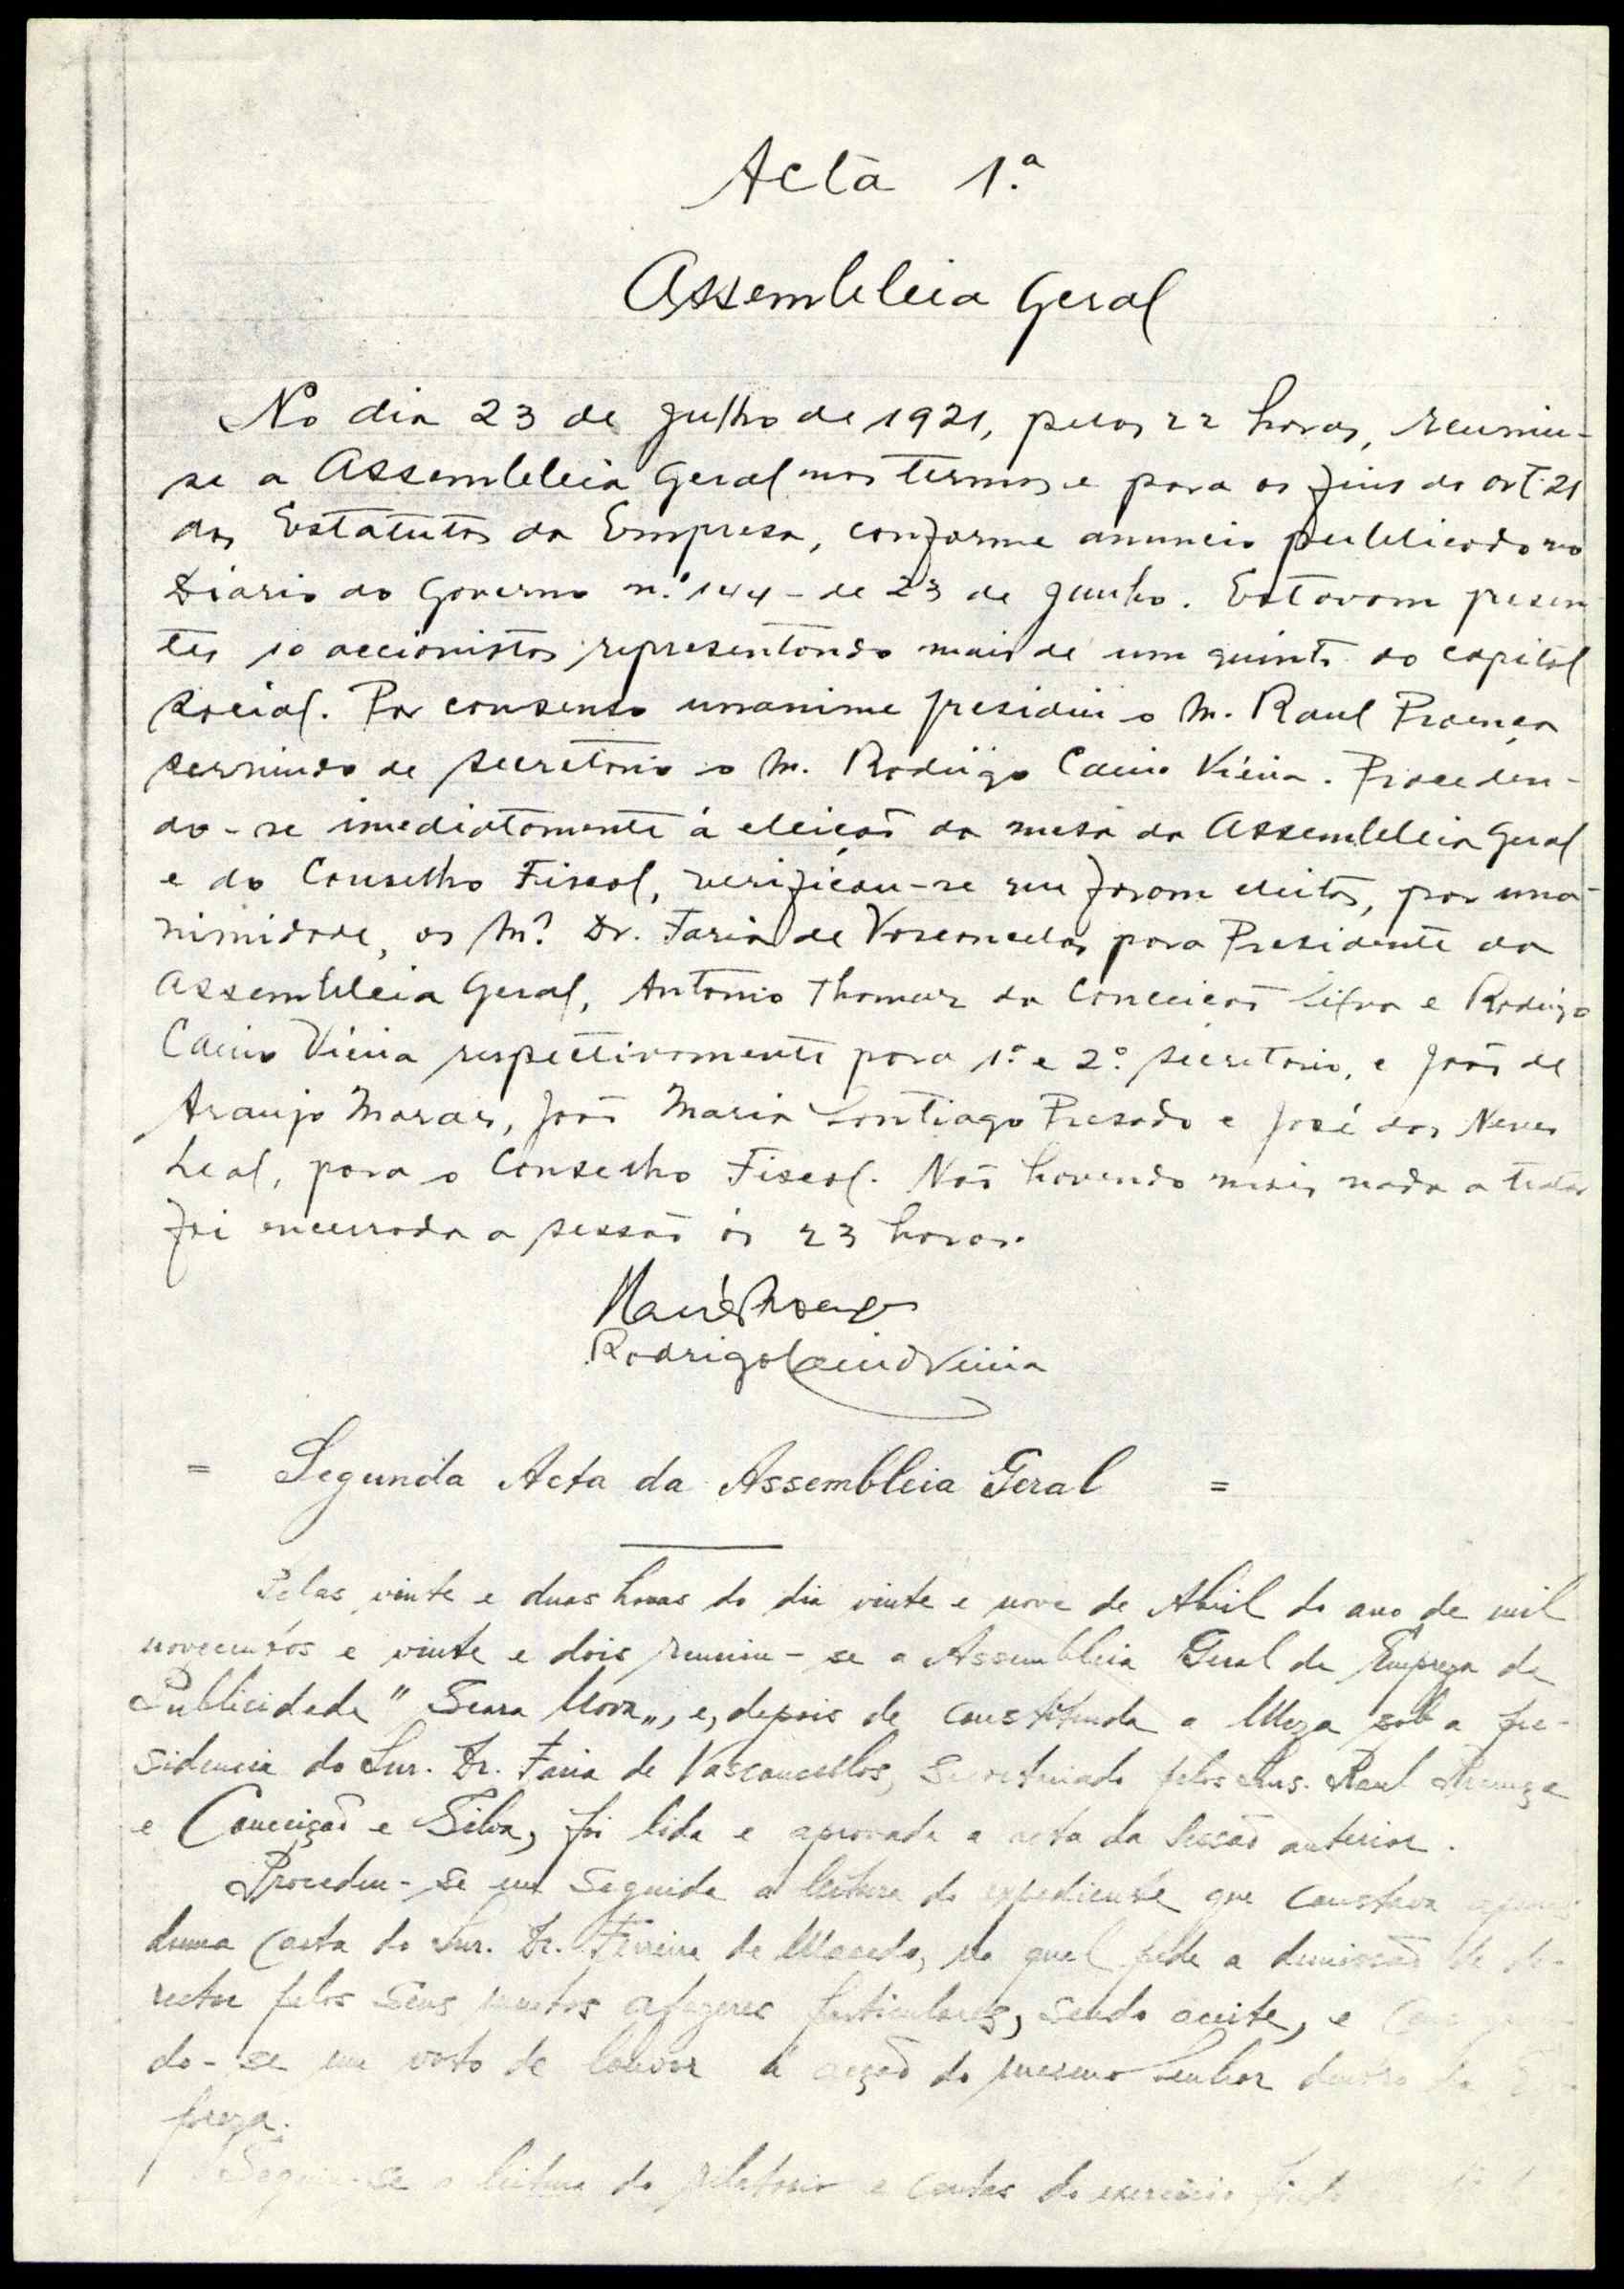 Acta 1.ª
Assembleia Geral
No dia 23 de Julho de 1921, pelas 22 horas, reuniu-
se a Assembleia Geral nos termos e para os fins do art. 21
dos Estatutos da Empresa, conforme anuncio publicado no
Diario do Governo n.º 144 - de 23 de Junho. Estavam presen
tes 10 accionistas representando mais de um quinto do capital
social. Por consenso unanime presidiu o Sr. Raul Proença
servindo de secretario o Sr. Rodrigo Caeiro Vieira. Proceden-
do-se imediatamente á eleição da mesa da Assembleia Geral
e do Conselho Fiscal, verificou-se que foram eleitos, por una-
nimidade, os Srs. Dr. Faria de Vasconcelos para Presidente da
Assembleia Geral, Antonio Thomaz da Conceição Silva e Rodrigo
Caeiro Vieira respectivamente para 1.º e 2.º secretario, e João de
Araujo Moraes, João Maria Santiago Presado e José das Neves
Leal, para o Conselho Fiscal. Não havendo mais nada a tratar
foi encerrada a sessão ás 23 horas.
Raul Proença
Rodrigo Caeiro Vieira
= Segunda Acta da Assembleia Geral =
Pelas vinte e duas horas do dia vinte e nove de Abril do ano de mil
novecentos e vinte e dois reuniu-se a Assembleia Geral da Empreza de
Publicidade "Seara Nova„, e, depois de constituida a Meza sob a pre-
sidencia do Snr. Dr. Faria de Vasconcellos, secretariado pelos Snrs. Raul Proença
e Conceição e Silva, foi lida e aprovada a acta da secção anterior.
Procedeu-se em seguida a leitura do expediente que constava apenas
duma carta do Snr. Dr. Ferreira de Macedo, na qual pede a demissão de di-
rector pelos seus muitos afazeres particulares, sendo aceite, e
do-se um voto de louvor á acção do mesmo senhor dentro da Em-
preza.
Seguiu-se a leitura do relatorio e contas do exercicio findo